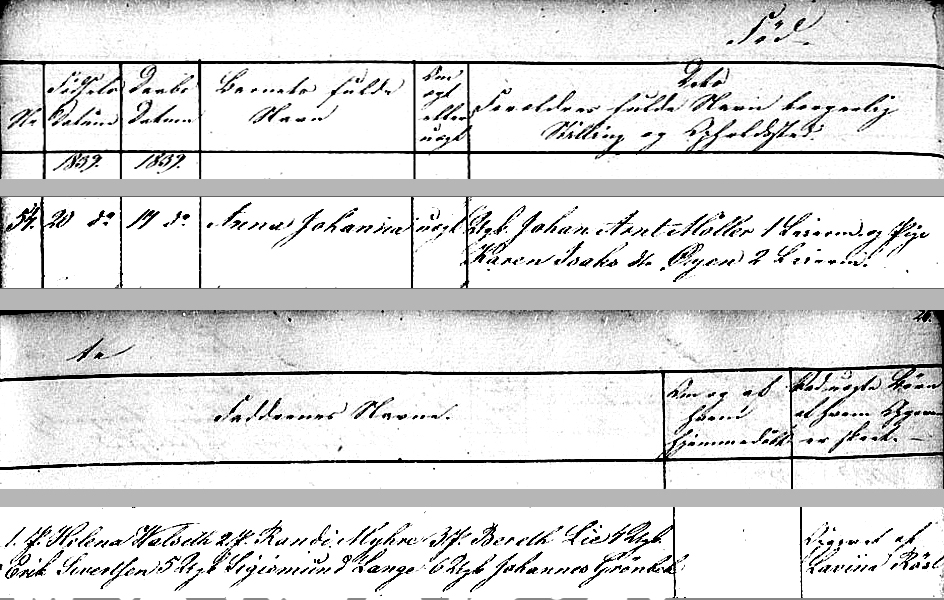 Fød
No Fødsels Datum Daabs Datum Barnets fulde Navn Om ægt eller uægt Dets Forældres fulde Navn borgerlig Stilling og Opholdssted.
1839. 1839.
54. 20 do 19 do Anna Johanna uægt Ungk. Johan Arnt Møller 1 Leierm. og Pige
Karen Isaks dtr Øyen 2 Leierm.
te
Faddernes Navne. Om og af hvem hjemmedøbt. Ved uægte Børn af hvem Opgaven er skeet. —
1. P. Helena Walseth 2. P. Randi Myhre 3. P. Bereth Lie 4 Ungk.
Erik Sivertsen 5 Ungk Sigismund Lange 6 Ungk Johannes Grönbek
Opgivet af
Lavina